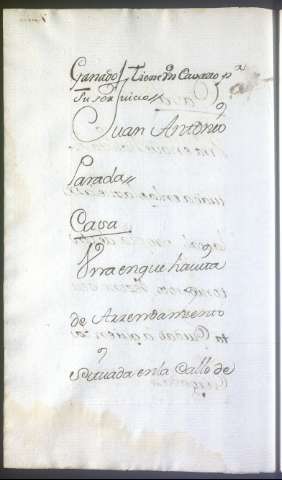 Ganado // Tiene Un Cavallo p.ª
su servicio //
Juan Antonio
Parada //
Casa
Una en que havita
de Arrendamiento
situada en la Calle de